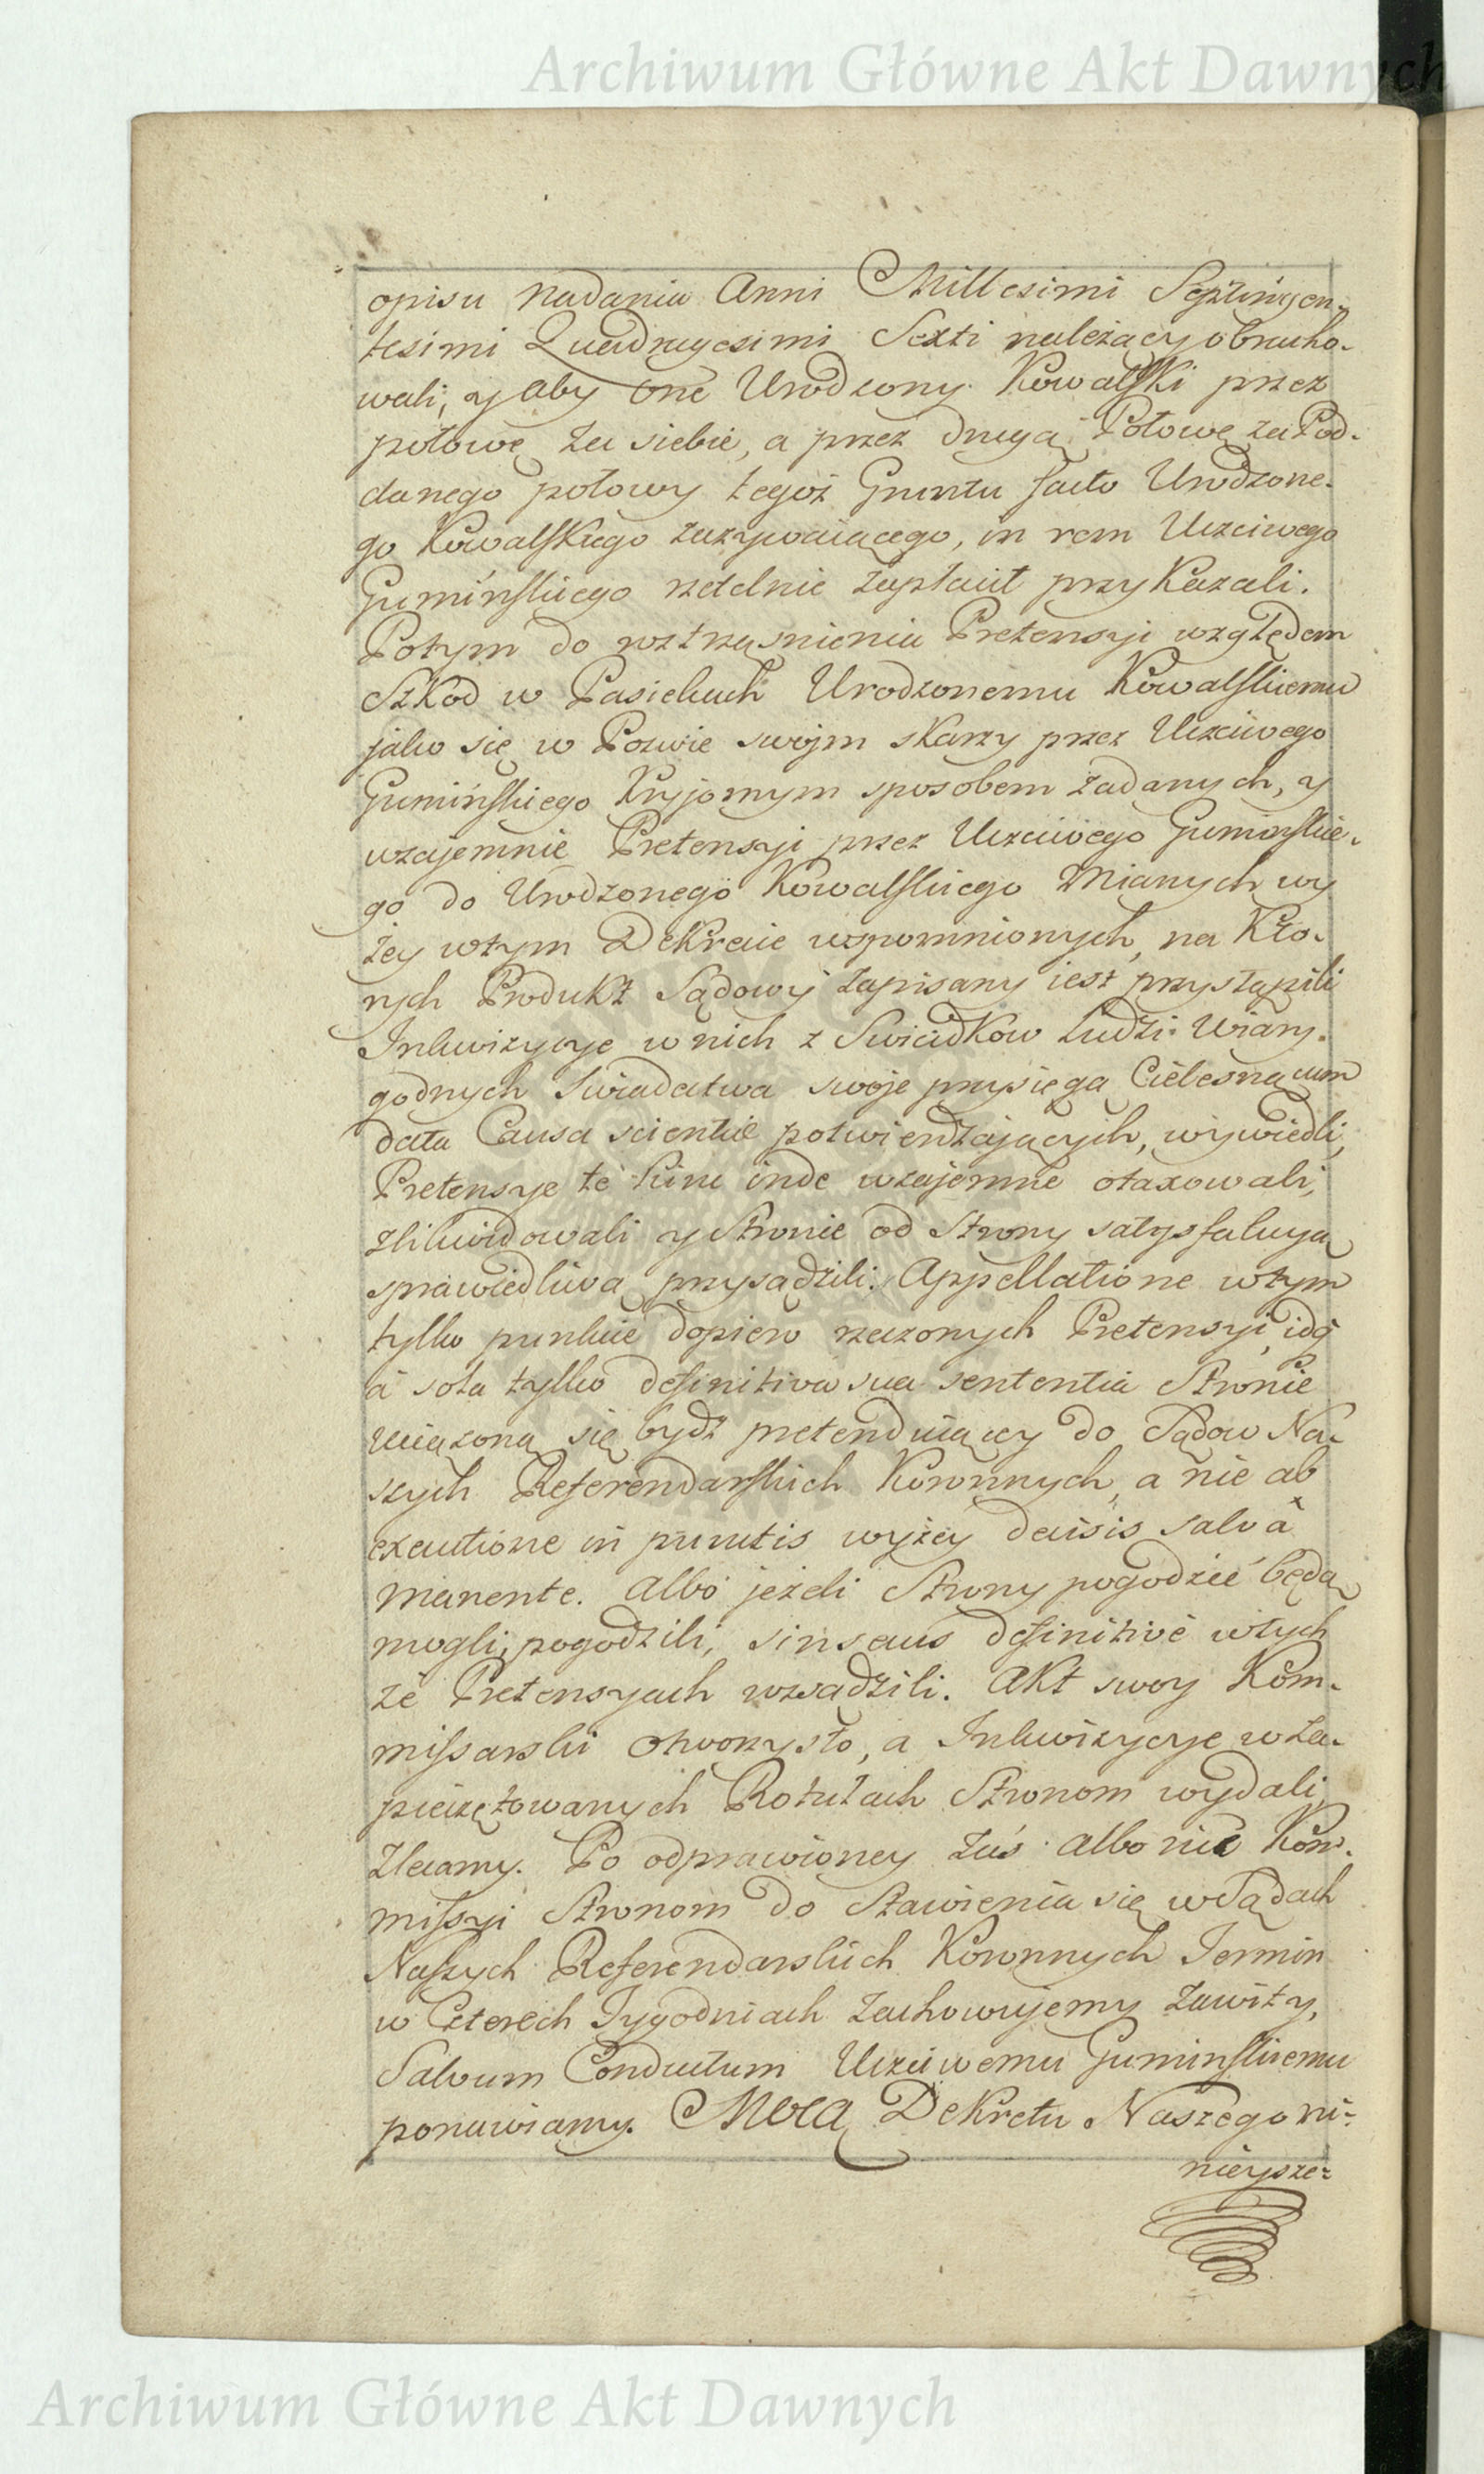 Archiwum Główne Akt Dawnych
opisu nadania Anni Millesimi Septingen-
tesimi Quadragesimi Sexti należący obracho-
wali, y aby one Urodzony Kowalski przez
połowę za siebie, a przez drugą Połowę za Pod-
danego połowy tegoż Gruntu facto Urodzone-
go Kowalskiego zażywaiącego, in rem Uczciwego
Gumińskiego rzetelnie zapłacił przykazali.
Potym do roztrząsnienia Pretensyi względem
Szkod w Pasiekach Urodzonemu Kowalskiemu
jako się w Pozwie swojm skarzy przez Uczciwego
Gumińskiego Kryjomym sposobem zadanych, y
wzajemnie Pretensyi przez Uczciwego Guminskie-
go do Urodzonego Kowalskiego Mianych wy
żey wtym Dekrecie wspomnionych, na Kto-
rych Produkt Sądowy zapisany iest przystąpili
Inkwizycye w nich z Swiadkow Ludzi Wiary-
godnych Swiadectwa swoje przysięgą Cielesną cum
data Causa scientiæ potwierdzających, wywiedli,
Pretensye te hinc inde wzajemne otaxowali,
zlikwidowali y Stronie od Strony satysfakcyą
sprawiedliwą przysądzili. Appellatione wtym
tylko punkcie dopiero rzeczonych Pretensyi, idq
a sola tylko definitiva sua sententia Stronie
uciązoną się bydź pretenduiącey do Sądow Na-
szych Referendarskich Koronnych, a nie ab
executione in punctis wyżey decisis salvâ
manente. Albo jeżeli Strony pogodzić będą
mogli, pogodzili, sin secus definitivè wtych
że Pretensyach rozsądzili. Akt swoy Kom-
missarski otworzysto, a Inkwizycye w Za-
pieczętowanych Rotułach Stronom wydali,
Zlecamy. Po odprawioney zaś albo nie Kom-
missyi Stronom do Stawienia się w Sądach
Naszych Referendarskich Koronnych Termin
w Czterech Tygodniach zachowujemy zawity,
Salvum Conductum Uczciwemu Guminskiemu
ponawiamy. Mocą Dekretu Naszego ni-
nieysze-
Archiwum Główne Akt Dawnych